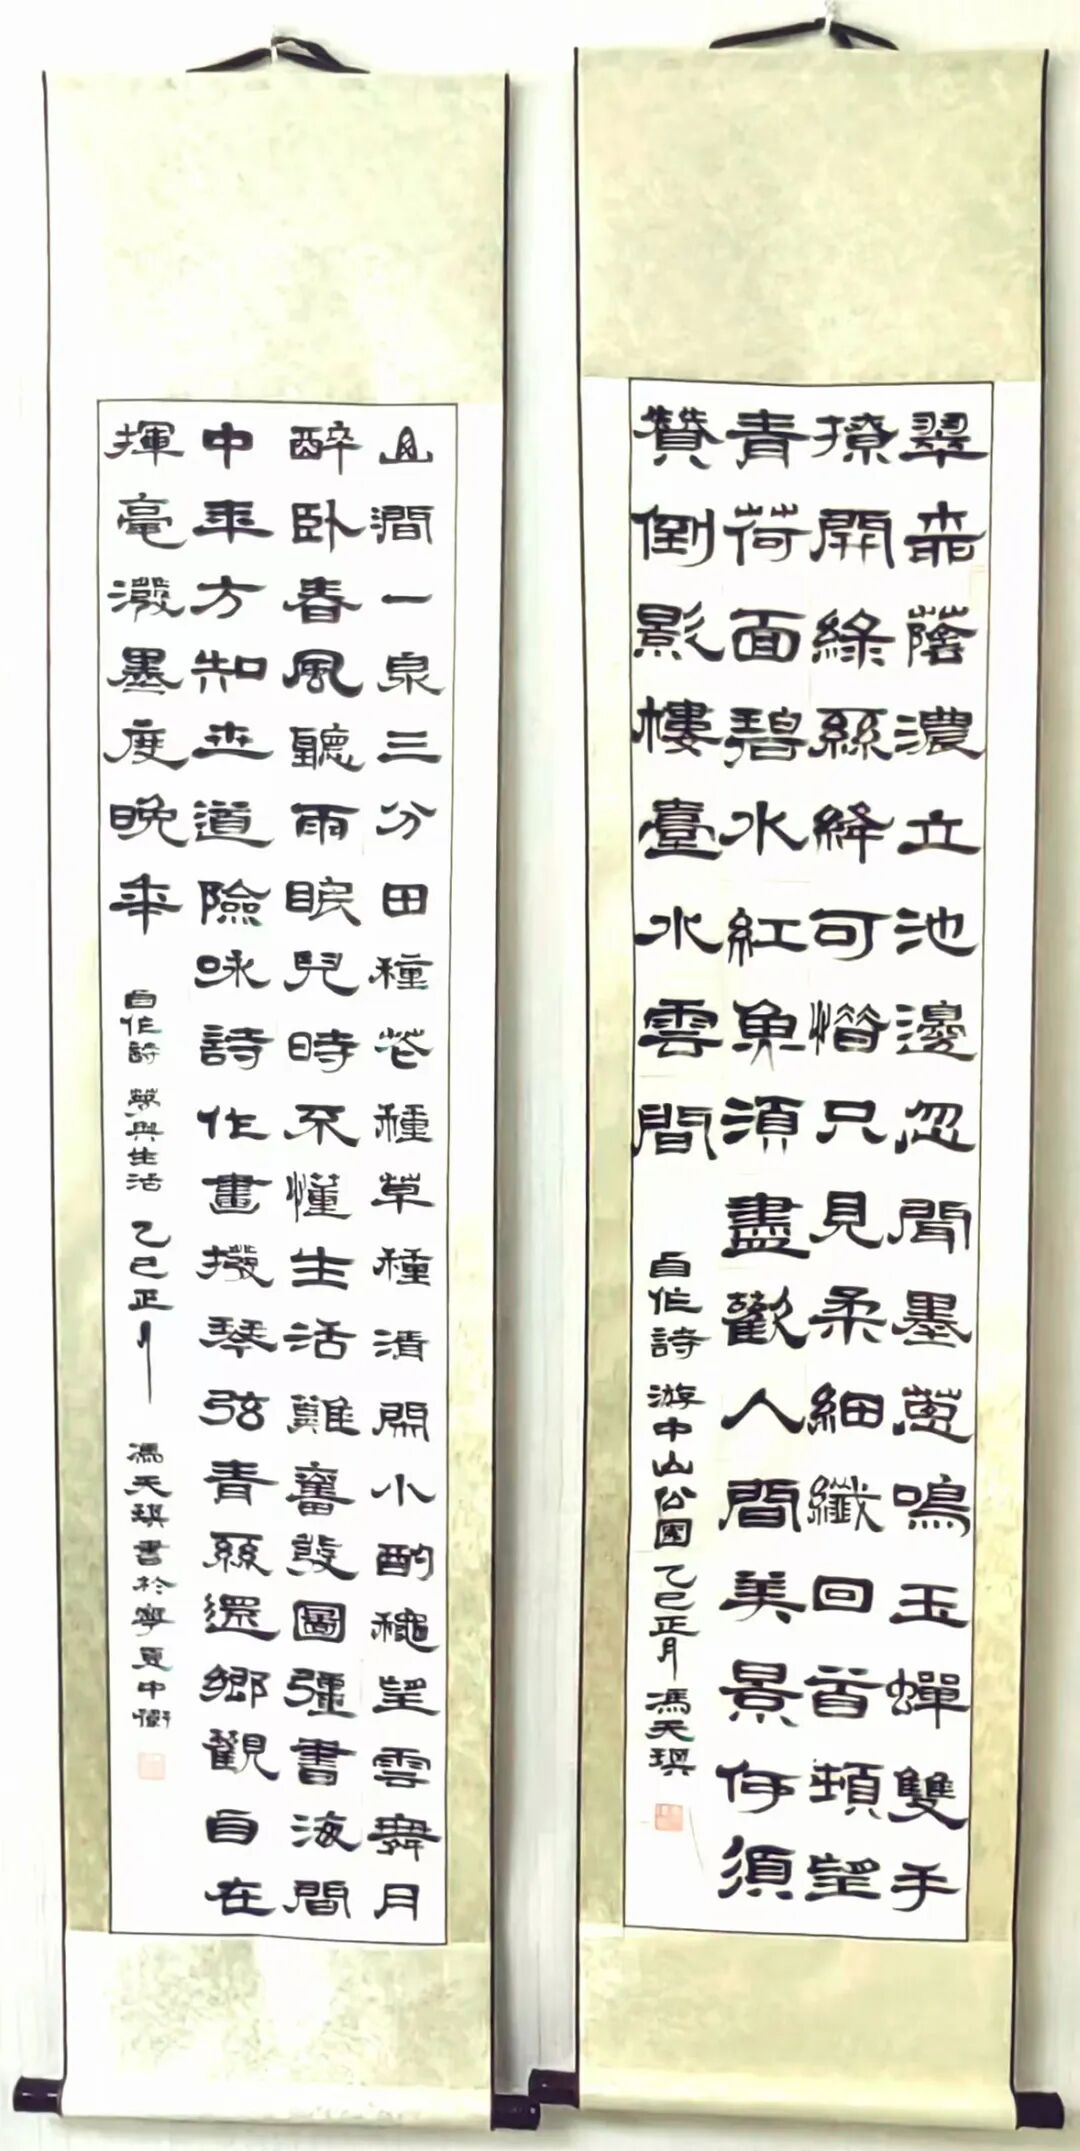 翠垂蔭濃立池邊忽聞墨蔥鳴玉蟬雙手
撩開綠絲絳可惜只見柔細纖回首頻望
青荷面碧水紅魚須盡歡人間美景何須
贊倒影樓臺水雲間
自作詩 游中山公園 乙巳正月 馮天琪
山澗一泉三分田種花種草種清閑小酌穐望雲舞月
醉卧春風聽雨眠兒時不懂生活難奮發圖彊書海間
中年方知世道險咏詩作畫撥琴弦青絲還鄉觀自在
揮毫潑墨度晚年
自作詩 夢與生活 乙巳正月 馮天琪書於寧夏中衛